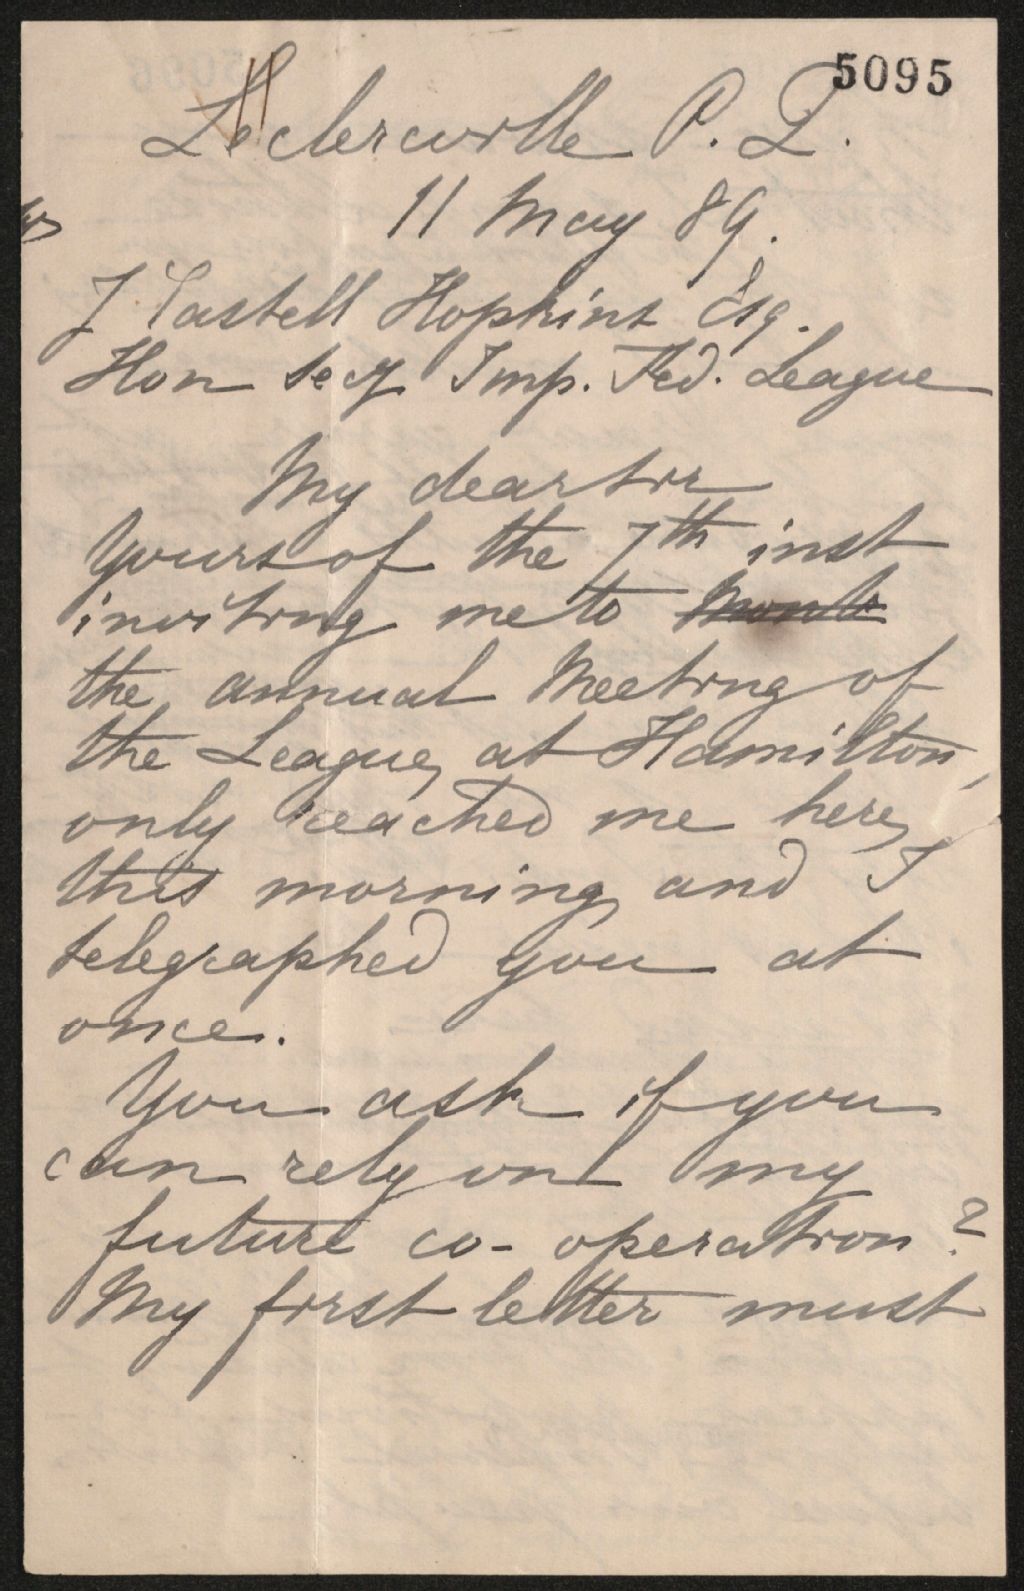 5095
Leclercville P. Q.
11 May 89.
J Castell Hopkins Esq.
Hon Secy Imp. Fed. League
My dear Sir
Yours of the 7th inst
inviting me to
the annual Meeting of
the League, at Hamilton,
only reached me here,
this morning, and I
telegraphed you at
once.
You ask if you
can rely on my
future co-operation?
My first letter must